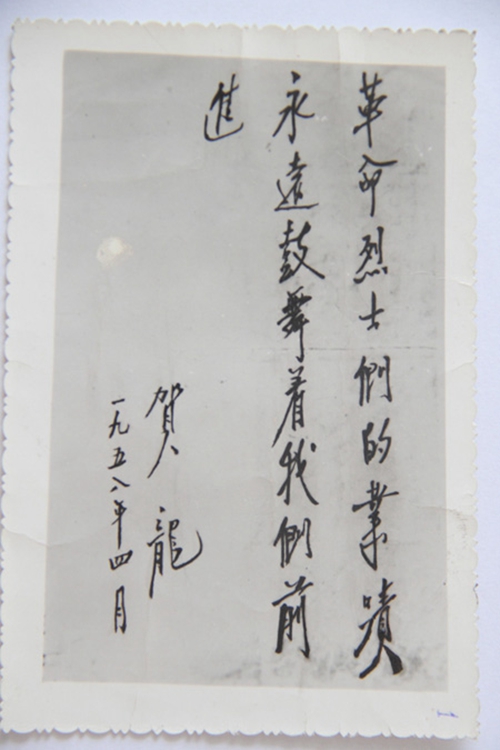 革命烈士們的業蹟
永遠鼓舞着我們前
進
賀龍
一九五八年四月